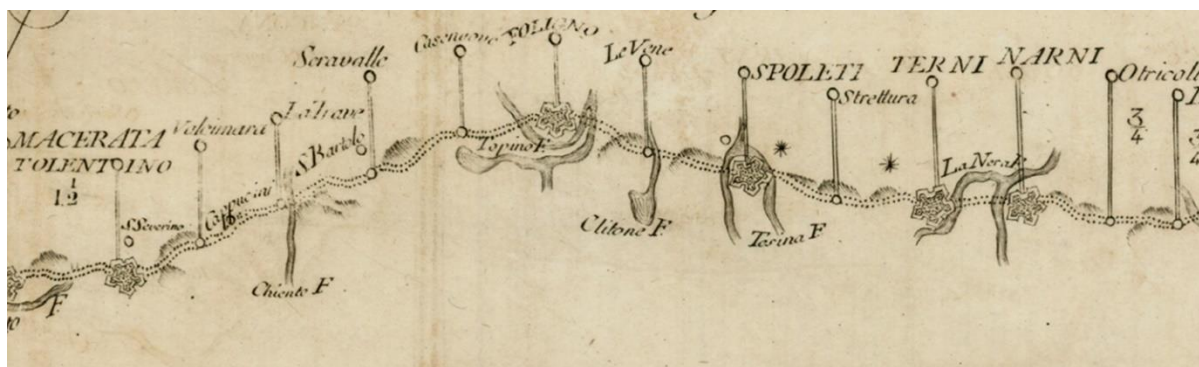 MACERATA
TOLENTOINO
1 1/2
S. Severino
Valcimara
Cappucini
La trave
S. Bartolo
Seravalle
Chiento F
F
Casenove
FOLIGNO
Topino F.
Le Vene
Clitone F.
SPOLETI
Tesina F
Strettura
TERNI
La Nera F.
NARNI
Otricoli
3/4